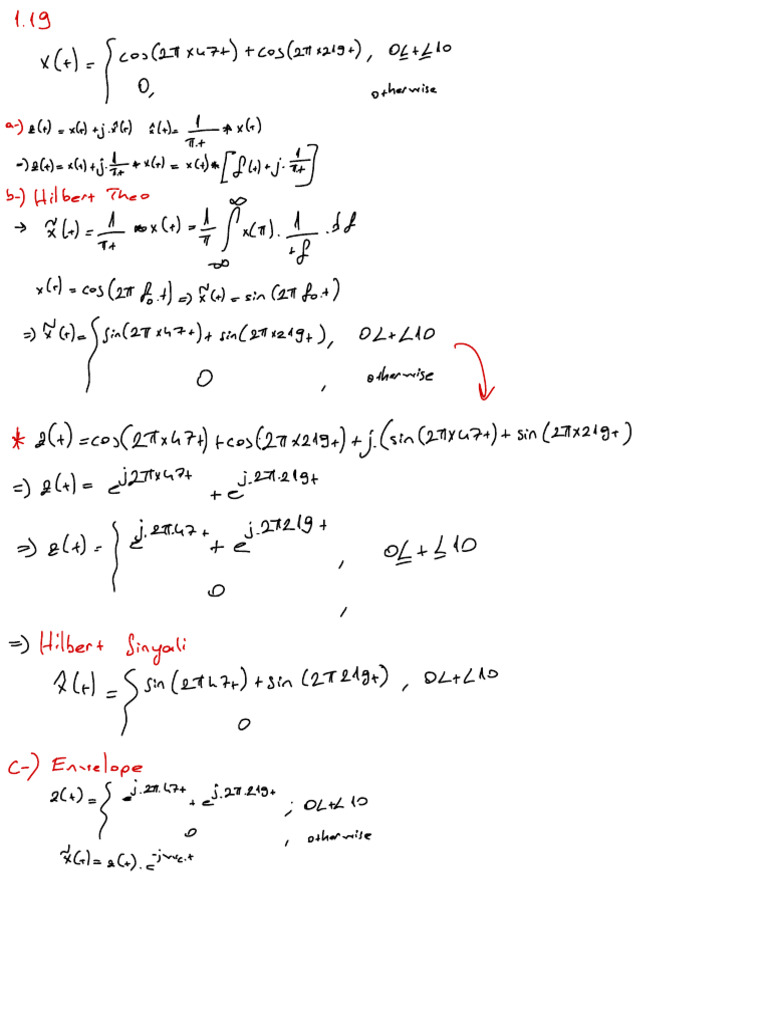 1.19
x(t) = { cos(2π×47t) + cos(2π×219t), 0≤t≤10
0, otherwise
a-) z(t) = x(t) + j.x̂(t) x̂(t) = 1/π.t * x(t)
→) z(t) = x(t) + j.1/πt * x(t) = x(t) * [ f(t) + j.1/πt ]
b-) Hilbert Theo
→ x̃(t) = 1/πt * x(t) = 1/π ∫_{-∞}^{∞} x(π). 1/t f . df
x(t) = cos(2π f₀.t) => x̃(t) = sin(2π f₀.t)
=> x̃(t) = { sin(2π×47t) + sin(2π×219t), 0≤t≤10
0 , otherwise
* z(t) = cos(2π×47t) + cos(2π×219t) + j.(sin(2π×47t) + sin(2π×219t)
=> z(t) = e^{j2π×47t} + e^{j.2π.219t}
=> z(t) = { e^{j.2π.47t} + e^{j.2π219t} , 0≤t≤10
0 ,
=> Hilbert Sinyali
x̂(t) = { sin(2π47t) + sin(2π219t) , 0≤t≤10
0
c-) Envelope
z(t) = { e^{j.2π.47t} + e^{j.2π.219t} ; 0≤t≤10
0 , otherwise
x̃(t) = z(t).e^{-jwc.t}